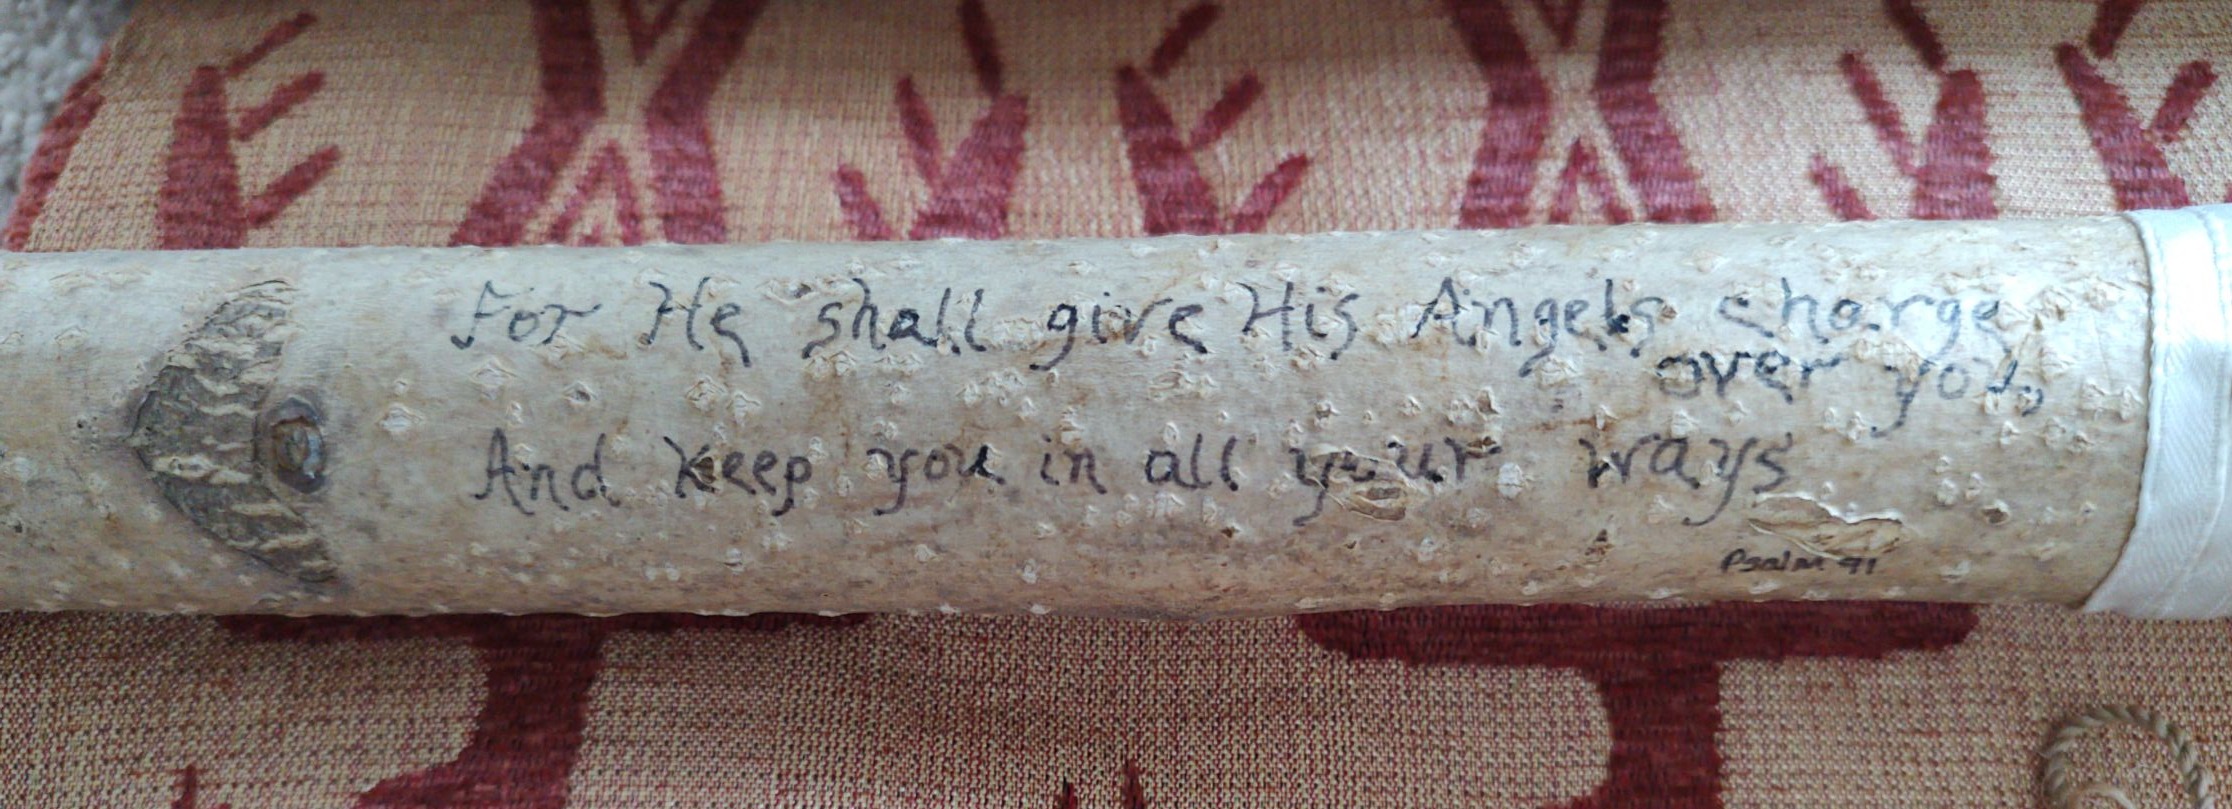 For He shall give His Angels charge
over you,
And keep you in all your ways
Psalm 91